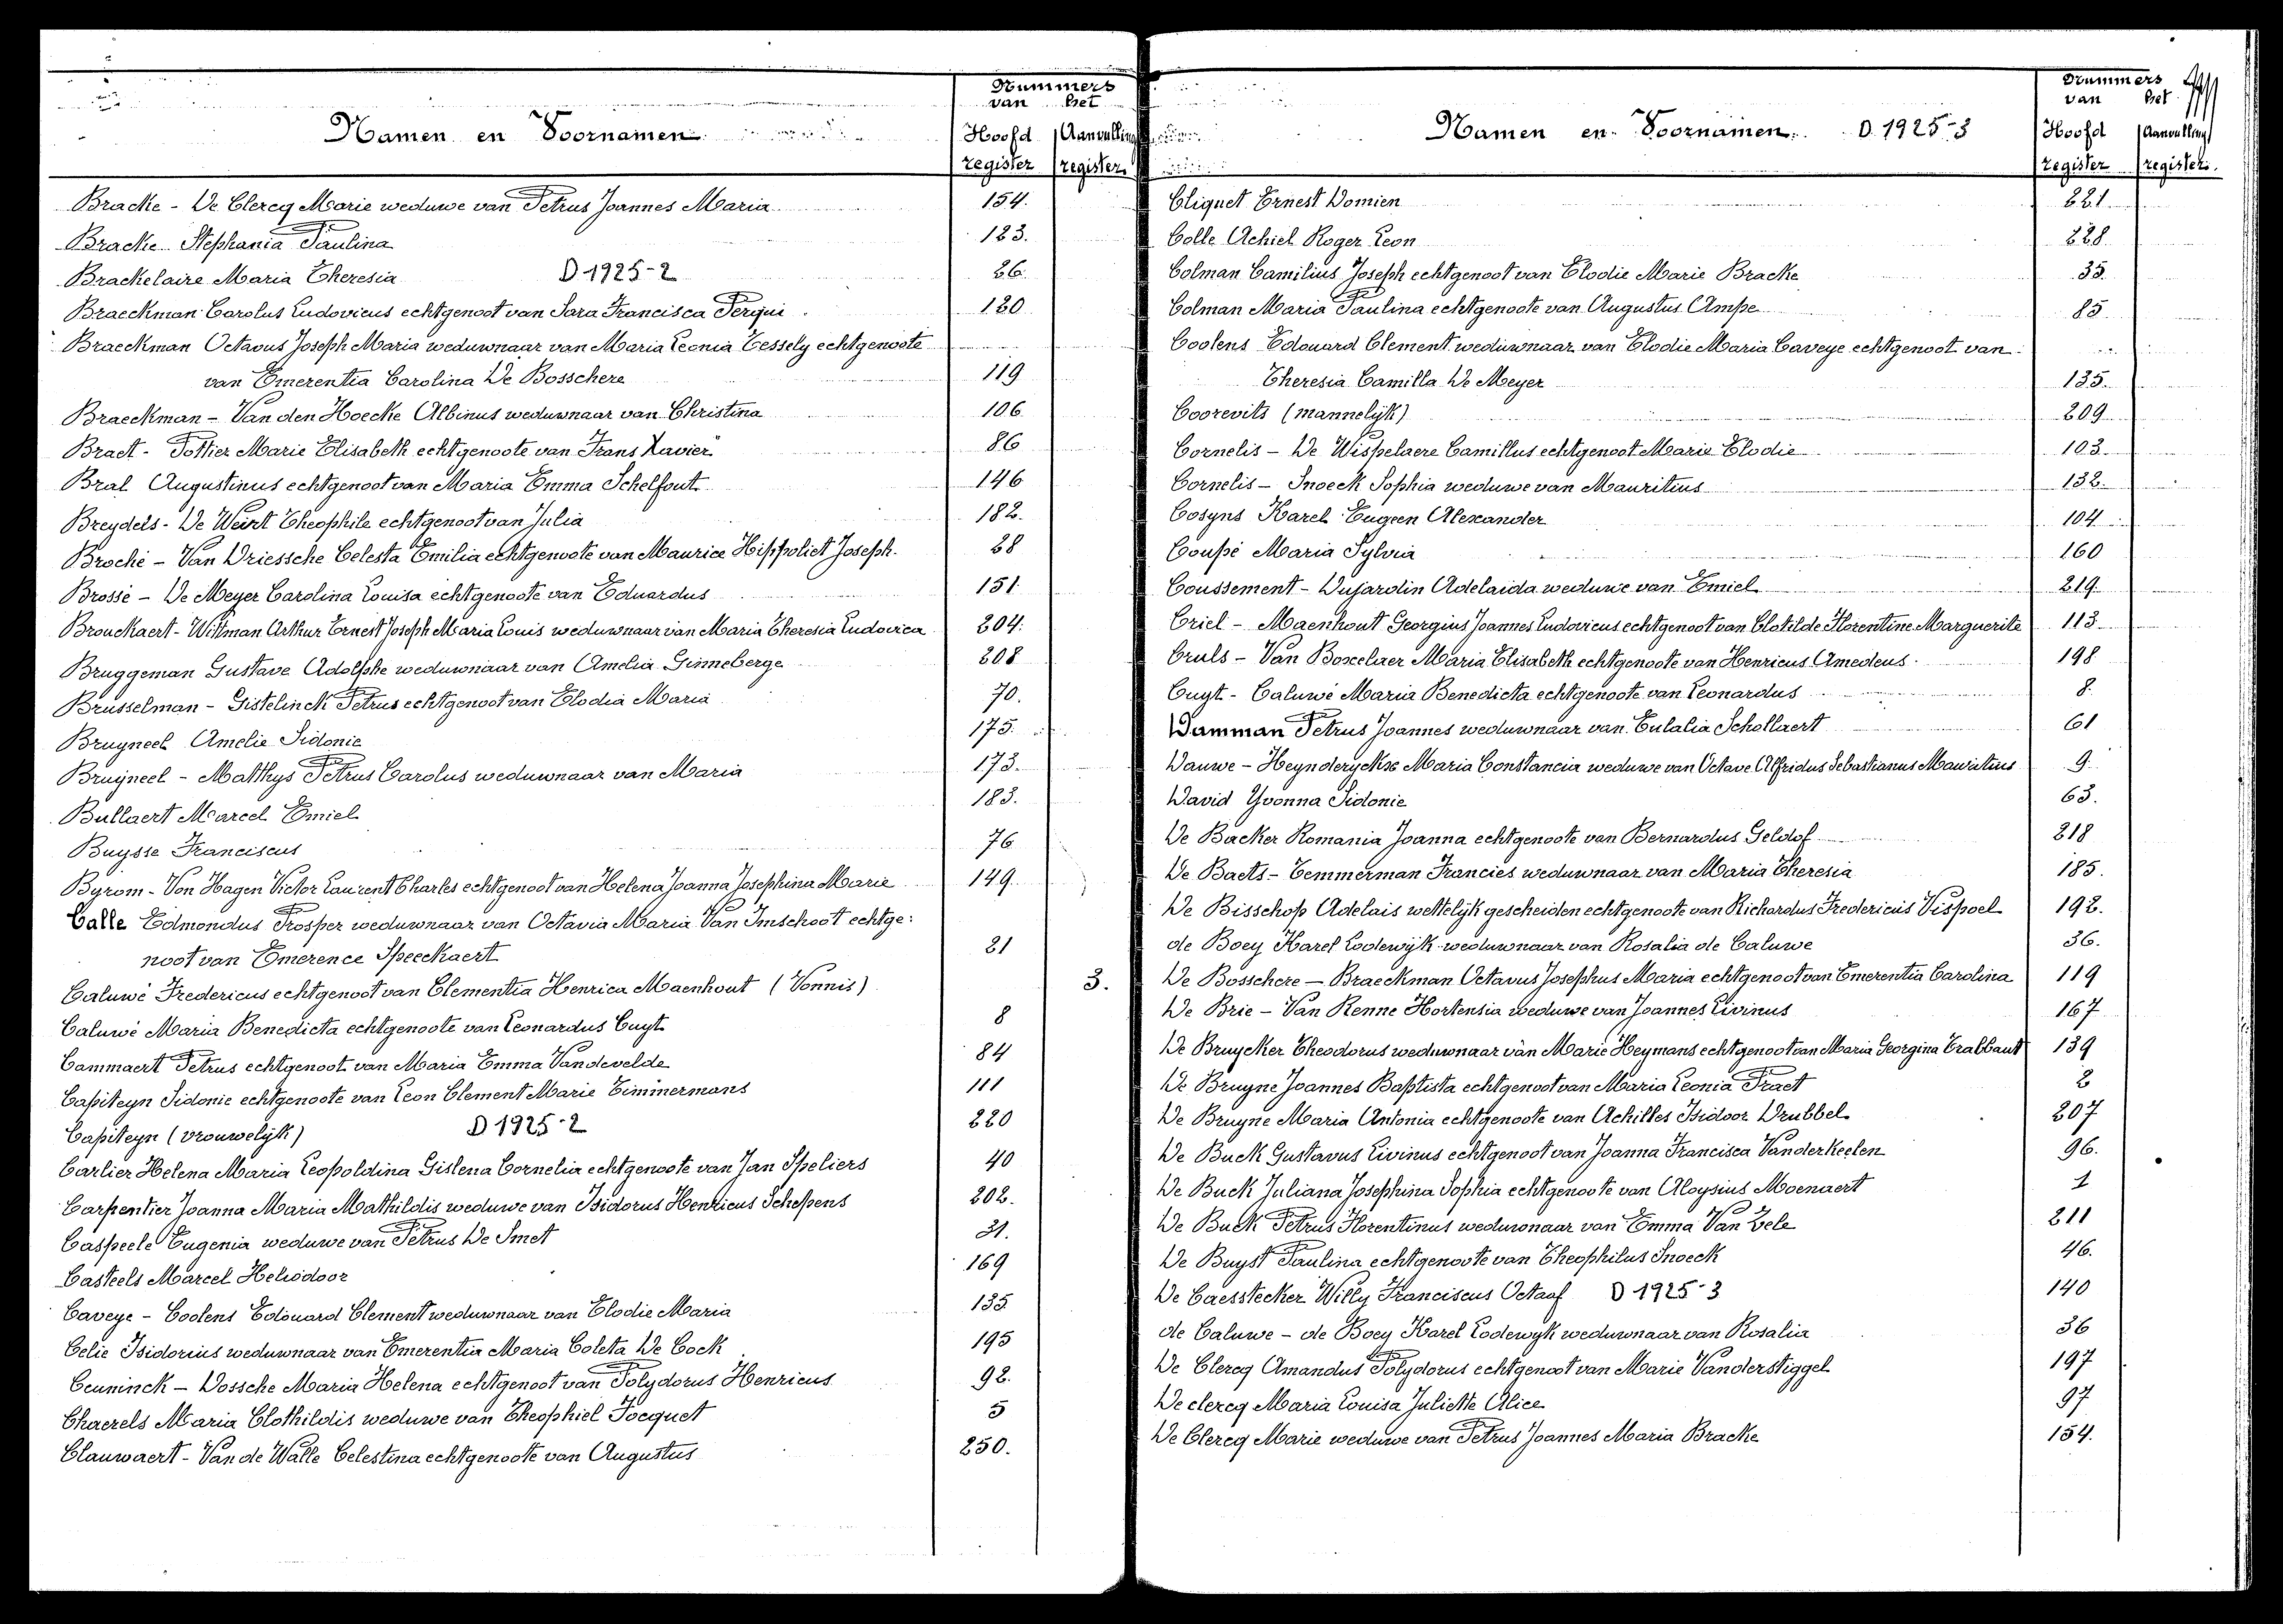 Nummers
van het
Namen en Voornamen
Hoofd Aanvulling
register register
Bracke - De Clercq Marie weduwe van Petrus Joannes Maria 154.
Bracke Stephania Paulina 123.
Brackelaire Maria Theresia D 1925-2 26.
Braeckman Carolus Ludovicus echtgenoot van Sara Francisca Perqui 120
Braeckman Octavus Joseph Maria weduwnaar van Maria Leonia Tessely echtgenoote
van Emerentia Carolina De Bosschere 119
Braeckman - Van den Hoecke Albinus weduwnaar van Christina 106
Braet - Pottier Marie Elisabeth echtgenoote van Frans Xavier 86
Bral Augustinus echtgenoot van Maria Emma Schelfout 146
Breydels - De Weirt Theophile echtgenoot van Julia 182.
Broché - Van Driessche Celesta Emilia echtgenoote van Maurice Hippoliet Joseph. 28
Brossé - De Meyer Carolina Louisa echtgenoote van Eduardus 151
Brouckaert - Wittman Arthur Ernest Joseph Maria Louis weduwnaar van Maria Theresia Ludovica 204.
Bruggeman Gustave Adolphe weduwnaar van Amelia Ginneberge 208
Brusselman - Gistelinck Petrus echtgenoot van Elodia Maria 70.
Bruyneel Amelie Sidonie 175.
Bruyneel - Matthys Petrus Carolus weduwnaar van Maria 173.
Bullaert Marcel Emiel 183.
Buysse Franciscus 76
Byrom - Von Hagen Victor Laurent Charles echtgenoot van Helena Joanna Josephina Marie 149.
Calle Edmondus Prosper weduwnaar van Octavia Maria Van Imschoot echtge:
noot van Emerence Speeckaert 21
Caluwé Fredericus echtgenoot van Clementia Henrica Maenhout (Vonnis)
Caluwé Maria Benedicta echtgenoote van Leonardus Cuyt 8
Cammaert Petrus echtgenoot van Maria Emma Vandevelde 84
Capiteyn Sidonie echtgenoote van Leon Clement Marie Timmermans 111
Capiteyn (vrouwelijk) D 1925-2 220
Carlier Helena Maria Leopoldina Gislena Cornelia echtgenoote van Jan Speliers 40
Carpentier Joanna Maria Mathildis weduwe van Isidorus Henricus Schepens 202.
Caspeele Eugenia weduwe van Petrus De Smet 31.
Casteels Marcel Heliodoor 169
Caveye - Coolens Edouard Clement weduwnaar van Elodie Maria 135
Celie Isidorius weduwnaar van Emerentia Maria Coleta De Cock 195
Ceuninck - Dossche Maria Helena echtgenoot van Polydorus Henricus 92.
Chaerels Maria Clothildis weduwe van Theophiel Jocquet 5
Clauwaert - Van de Walle Celestina echtgenoote van Augustus 250.
Nummers
van het
Namen en Voornamen. D. 1925-3
Hoofd Aanvulling
register register.
Cliquet Ernest Domien 221
Colle Achiel Roger Leon 228
Colman Camilius Joseph echtgenoot van Elodie Marie Bracke 35.
Colman Maria Paulina echtgenoote van Augustus Ampe 85
Coolens Edouard Clement weduwnaar van Elodie Maria Caveye echtgenoot van
Theresia Camilla De Meyer 135.
Coorevits (mannelijk) 209
Cornelis - De Wispelaere Camillus echtgenoot Marie Elodie 103
Cornelis - Snoeck Sophia weduwe van Mauritius 132.
Cosyns Karel Eugeen Alexander 104
Coupé Maria Sylvia 160
Coussement - Dujardin Adelaida weduwe van Emiel 219
Criel - Maenhout Georgius Joannes Ludovicus echtgenoot van Clotilde Florentine Marguerite 113
Cruls - Van Boxelaer Maria Elisabeth echtgenoote van Henricus Amedeus. 198
Cuyt - Caluwé Maria Benedicta echtgenoote van Leonardus 8.
Damman Petrus Joannes weduwnaar van Eulalia Schollaert 61
Dauwe - Heynderyckx Maria Constancia weduwe van Octave Alfridus Sebastianus Mauritius 9.
David Yvonna Sidonie 63.
De Backer Romania Joanna echtgenoote van Bernardus Geldof 218
De Baets - Temmerman Francies weduwnaar van Maria Theresia 185.
De Bisschop Adelais wettelijk gescheiden echtgenoote van Richardus Fredericus Vispoel 192.
de Boey Karel Lodewijk weduwnaar van Rosalia de Caluwe 36.
3. De Bosschere - Braeckman Octavus Josephus Maria echtgenoot van Emerentia Carolina 119
De Brie - Van Renne Hortensia weduwe van Joannes Livinus 167
De Bruycker Theodorus weduwnaar van Marie Heymans echtgenoot van Maria Georgina Trabbaut 139
De Bruyne Joannes Baptista echtgenoot van Maria Leonia Praet 2
De Bruyne Maria Antonia echtgenoote van Achilles Isidoor Drubbel 207
De Buck Gustavus Livinus echtgenoot van Joanna Francisca Vanderkeelen 96.
De Buck Juliana Josephina Sophia echtgenoote van Aloysius Moenaert 1
De Buck Petrus Florentinus weduwnaar van Emma Van Zele 211
De Buyst Paulina echtgenoote van Theophilus Snoeck 46.
De Caesstecker Willy Franciscus Octaaf D 1925-3 140
de Caluwe - de Boey Karel Lodewyk weduwnaar van Rosalia 36
De Clercq Amandus Polydorus echtgenoot van Marie Vanderstiggel 197
De clercq Maria Louisa Juliette Alice 97
De Clercq Marie weduwe van Petrus Joannes Maria Bracke 154.